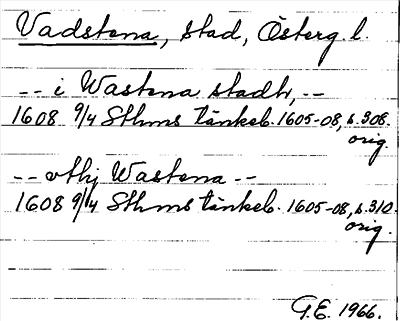 Vadstena, stad, Österg. l.
-- i Wastena stadh, --
1608 9/4 Sthms tänkeb. 1605-08, s. 308.
orig.
-- vthj Wastena --
1608 9/4 Sthms tänkeb. 1605-08, s. 310.
orig.
G.E. 1966.